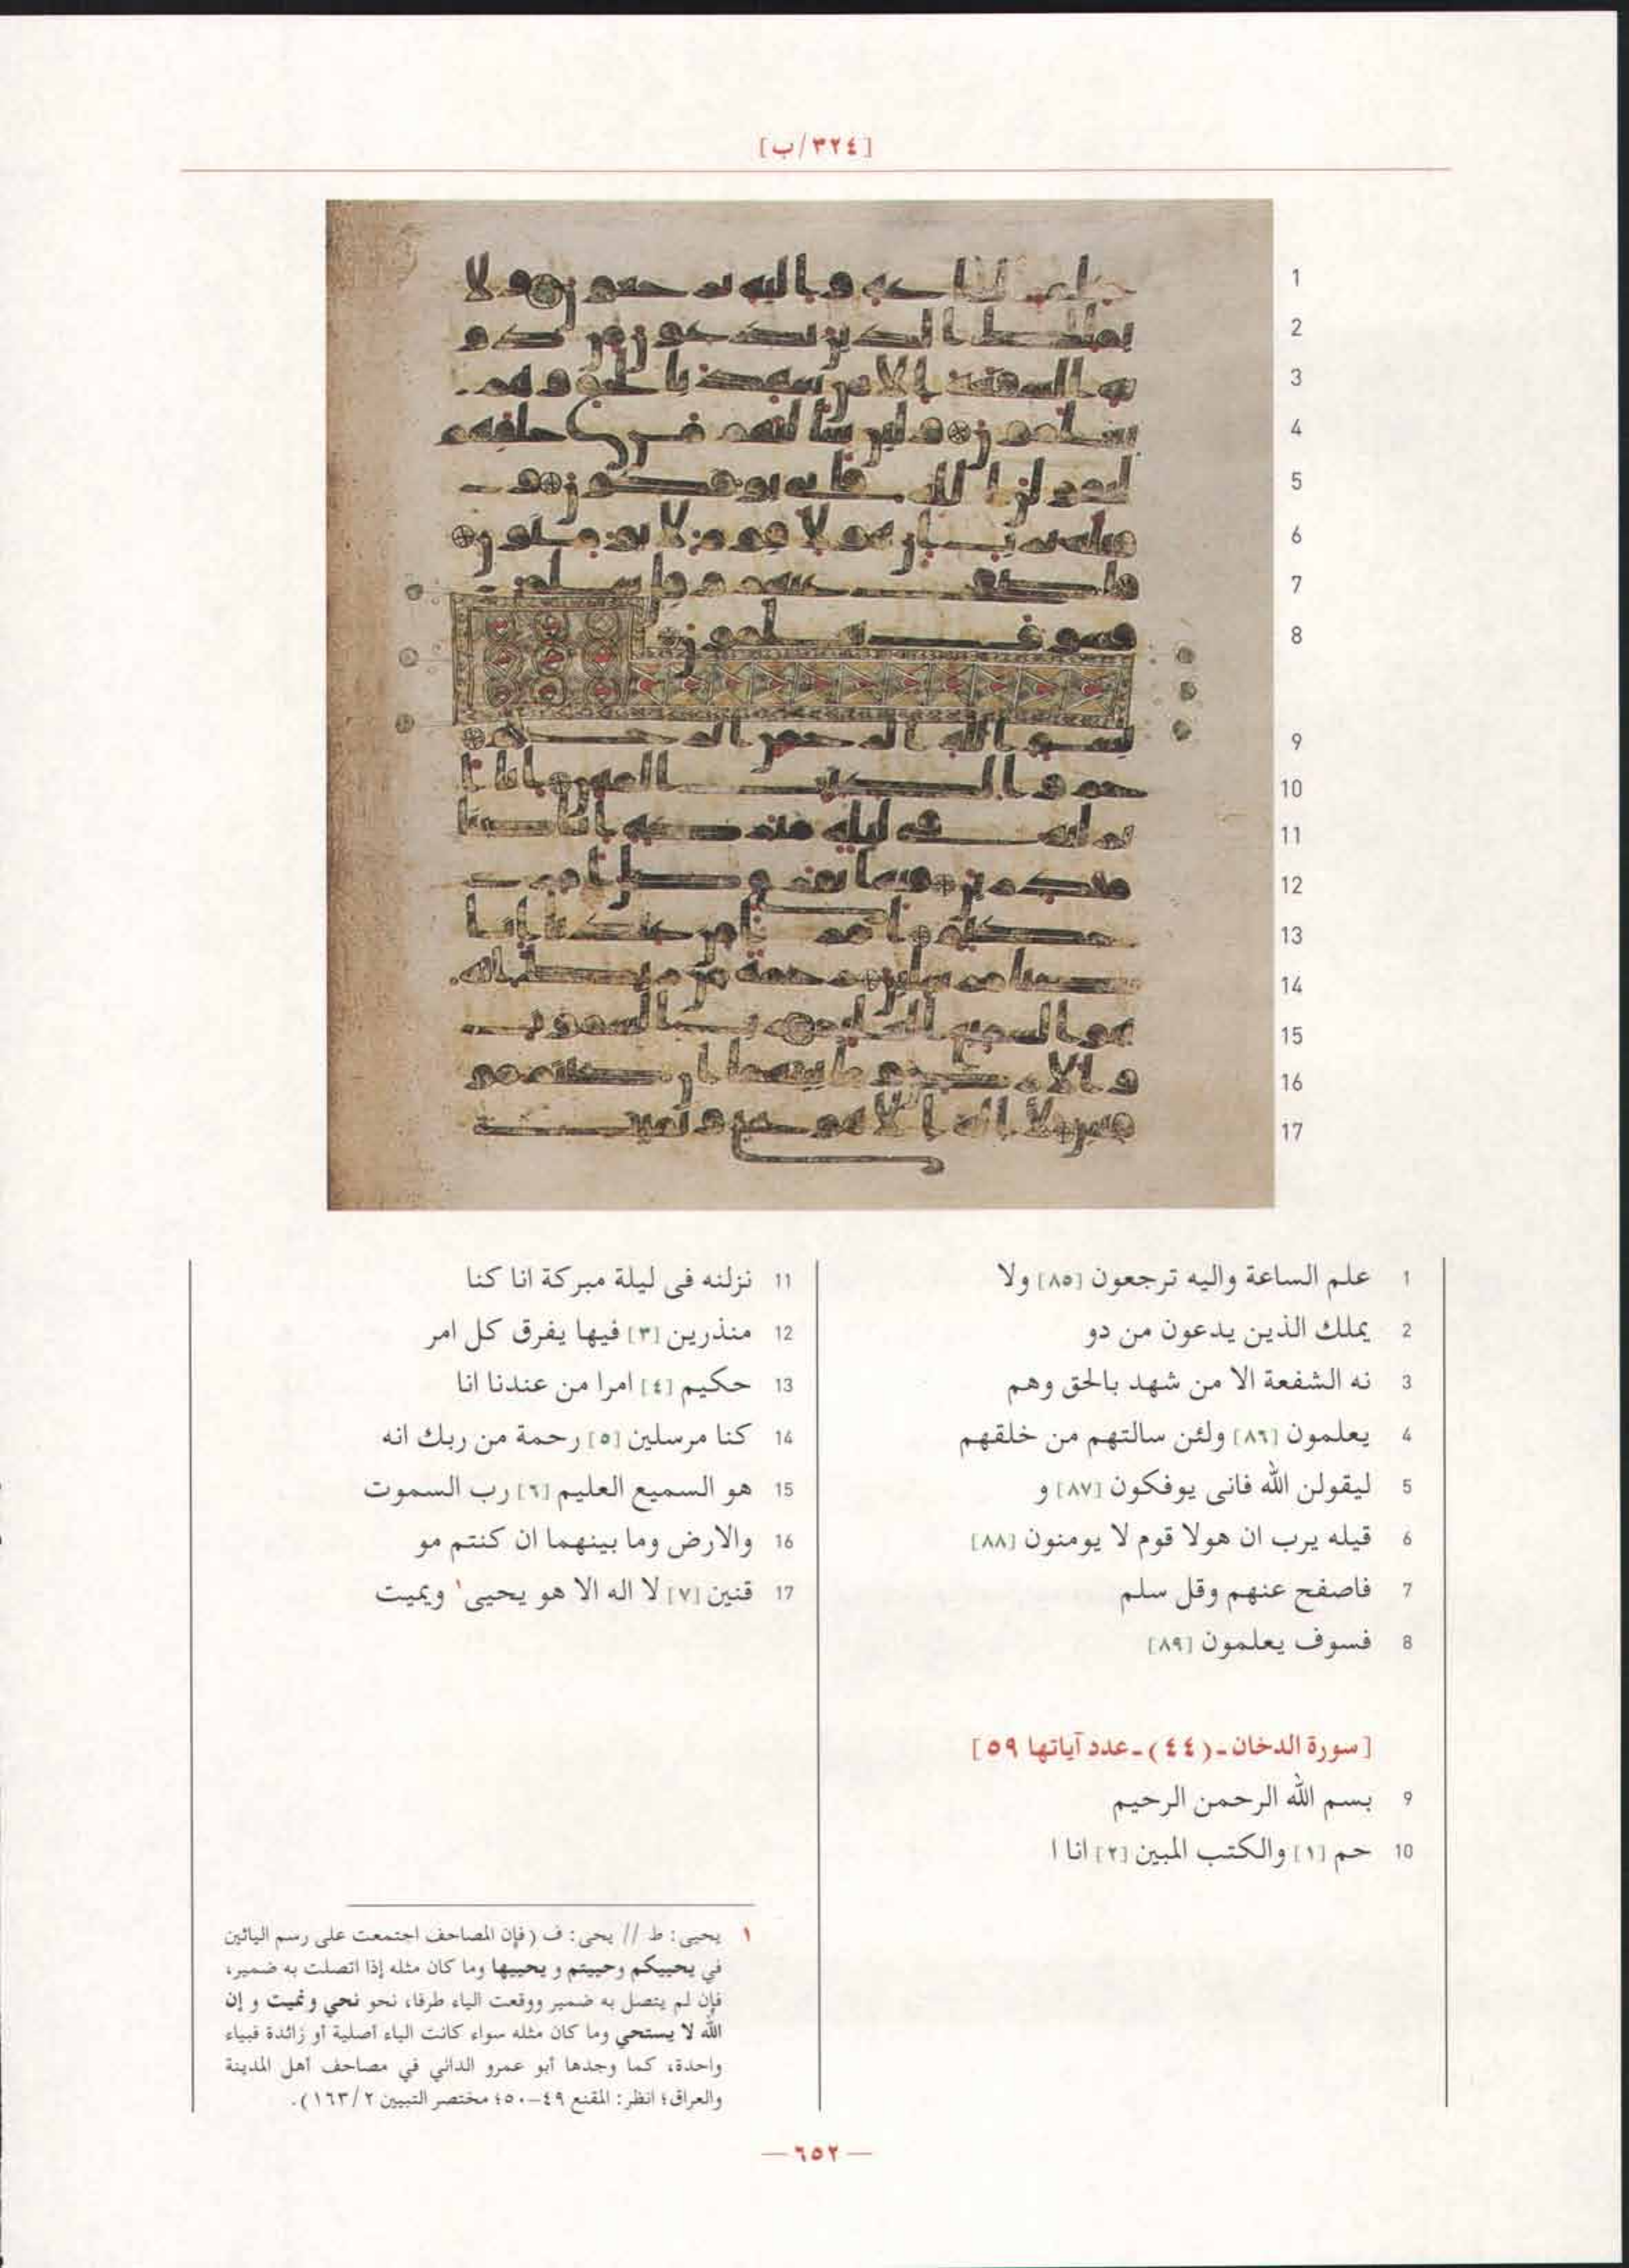 [٣٢٤/ب]
1
2
3
4
5
6
7
8
9
10
11
12
13
14
15
16
17
1 علم الساعة واليه ترجعون [٨٥] ولا
2 يملك الذين يدعون من دو
3 نه الشفعة الا من شهد بالحق وهم
4 يعلمون [٨٦] ولئن سالتهم من خلقهم
5 ليقولن الله فانى يوفكون [٨٧] و
6 قيله يرب ان هولا قوم لا يومنون [٨٨]
7 فاصفح عنهم وقل سلم
8 فسوف يعلمون [٨٩]
[سورة الدخان-(٤٤)-عدد آياتها ٥٩]
9 بسم الله الرحمن الرحيم
10 حم [١] والكتب المبين [٢] انا ا
11 نزلنه فى ليلة مبركة انا كنا
12 منذرين [٣] فيها يفرق كل امر
13 حكيم [٤] امرا من عندنا انا
14 كنا مرسلين [٥] رحمة من ربك انه
15 هو السميع العليم [٦] رب السموت
16 والارض وما بينهما ان كنتم مو
17 قنين [٧] لا اله الا هو يحيى١ ويميت
١ يحيى: ط // يحى: ف (فإن المصاحف اجتمعت على رسم اليائين
في يحييكم وحييتم و يحييها وما كان مثله إذا اتصلت به ضمير،
فإن لم يتصل به ضمير ووقعت الياء طرفا، نحو نحي ونميت و إن
الله لا يستحي وما كان مثله سواء كانت الياء أصلية أو زائدة فبياء
واحدة، كما وجدها أبو عمرو الداني في مصاحف أهل المدينة
والعراق؛ انظر: المقنع ٤٩-٥٠؛ مختصر التبيين ١٦٣/٢).
— ٦٥٢ —